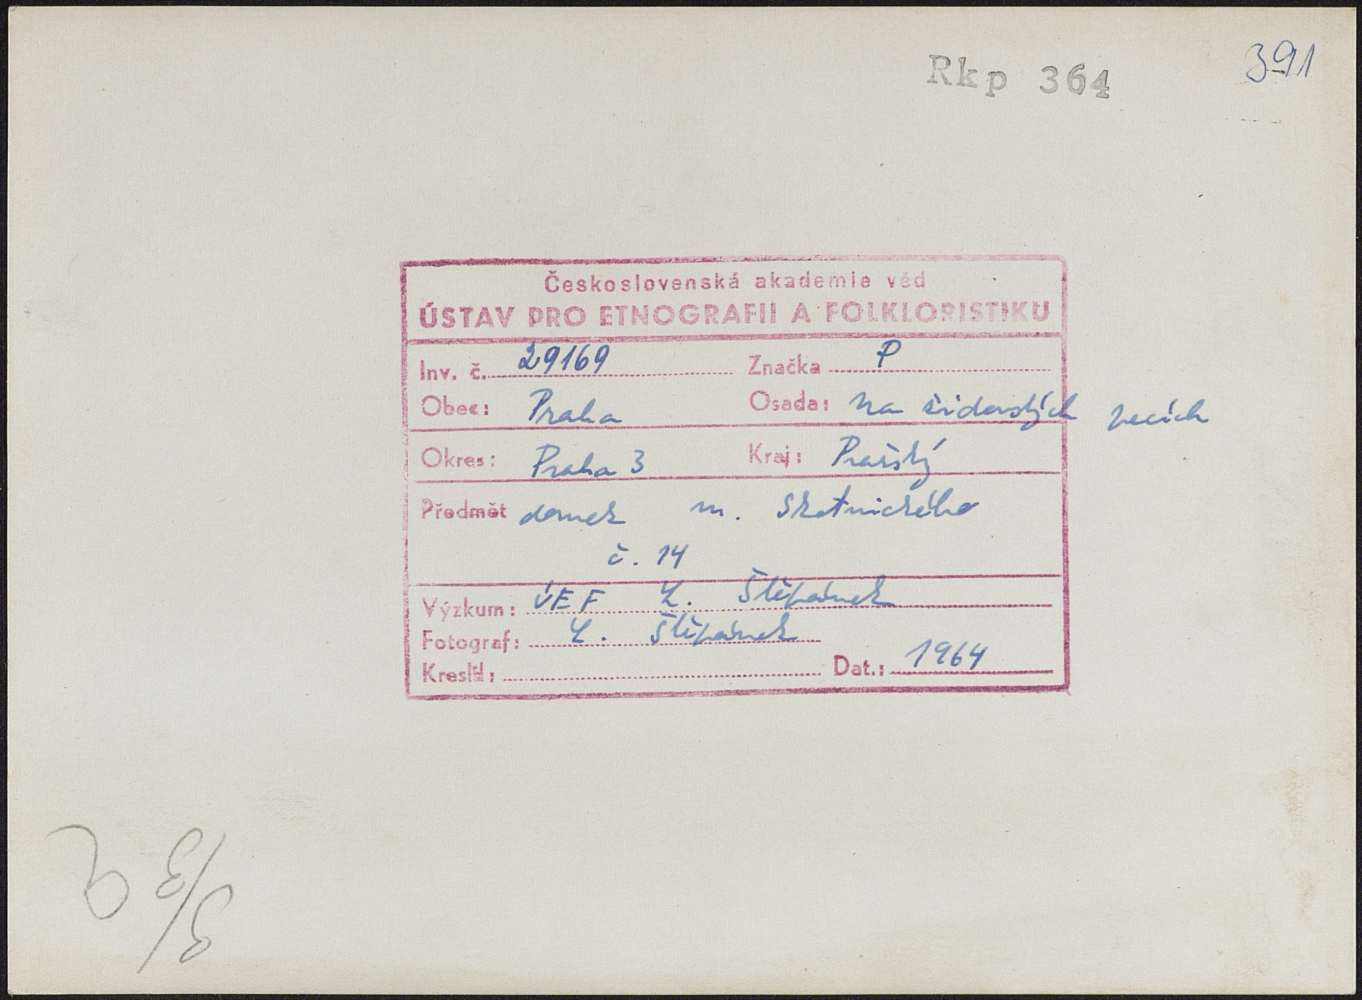 Rkp 364
391
Československá akademie věd
ÚSTAV PRO ETNOGRAFII A FOLKLORISTIKU
Inv. č. 29169 Značka P
Obec: Praha Osada: Na židovských pecích
Okres: Praha 3 Kraj: Pražský
Předmět domek m. Skotnického
č. 14
Výzkum: ÚEF L. Štěpánek
Fotograf: L. Štěpánek
Kreslil: Dat.: 1964